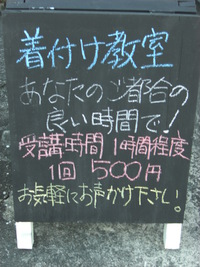 着付け教室
あなたのご都合の
良い時間で!
受講時間 1時間程度
1回 500円
お気軽にお声かけ下さい!